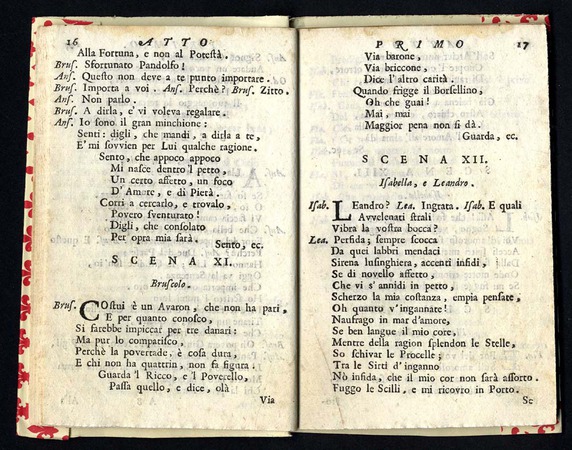 16 ATTO
Alla Fortuna, e non al Potestà.
Brus. Sfortunato Pandolfo!
Ans. Questo non deve a te punto importare.
Brus. Importa a voi. Ans. Perchè? Brus. Zitto.
Ans. Non parlo.
Brus. A dirla, e'vi voleva regalare.
Ans. Io sono il gran minchione:
Senti: digli, che mandi, a dirla a te,
E'mi sovvien per Lui qualche ragione.
Sento, che appoco appoco
Mi nasce dentro 'l petto,
Un certo affetto, un foco
D'Amore, e di Pietà.
Corri a cercarlo, e trovalo,
Povero sventurato!
Digli, che consolato
Per opra mia sarà.
Sento, ec.
SCENA XI.
Bruscolo.
Brus. COstui è un Avaron, che non ha pari,
E per quanto conosco,
Si farebbe impiccar per tre danari:
Ma pur lo compatisco,
Perchè la povertade, è cosa dura,
E chi non ha quattrin, non fa figura.
Guarda 'l Ricco, e 'l Poverello,
Passa quello, e dice, olà
Via
PRIMO 17
Via barone,
Via briccone,
Dice l'altro carità.
Quando frigge il Borsellino,
Oh che guai!
Mai, mai
Maggior pena non si dà.
Guarda, ec.
SCENA XII.
Isabella, e Leandro.
Isab. LEandro? Lea. Ingrata. Isab. E quali
Avvelenati strali
Vibra la vostra bocca?
Lea. Perfida; sempre scocca
Da quei labbri mendaci
Sirena lusinghiera, accenti infidi,
Se di novello affetto,
Che vi s'annidi in petto,
Scherzo la mia costanza, empia pensate,
Oh quanto v'ingannate!
Naufrago in mar d'amore,
Se ben langue il mio core,
Mentre della ragion splendon le Stelle,
So schivar le Procelle;
Tra le Sirti d'inganno
Nò infida, che il mio cor non sarà assorto.
Fuggo le Scilli, e mi ricovro in Porto.
Se